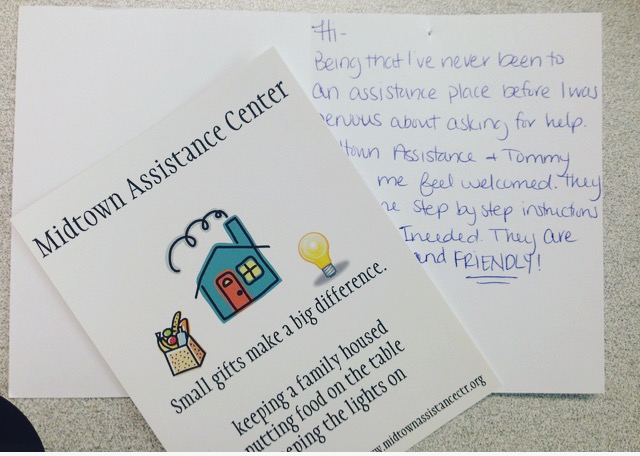 Hi-
Being that I've never been to
an assistance place before I was
nervous about asking for help.
town Assistance + Tommy
me feel welcomed. They
step by step instructions
I needed. They are
and FRIENDLY!
Midtown Assistance Center
Small gifts make a big difference.
keeping a family housed
putting food on the table
keeping the lights on
www.midtownassistancectr.org